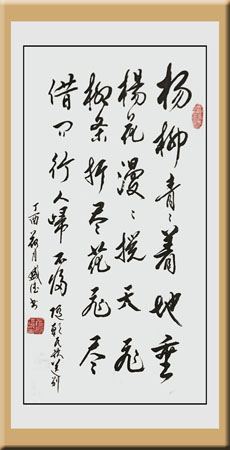 杨柳青〻着地垂
楊花漫〻搅天飞
柳条折尽花飞尽
借问行人歸不归 隋朝民歌送别
丁酉 月 书